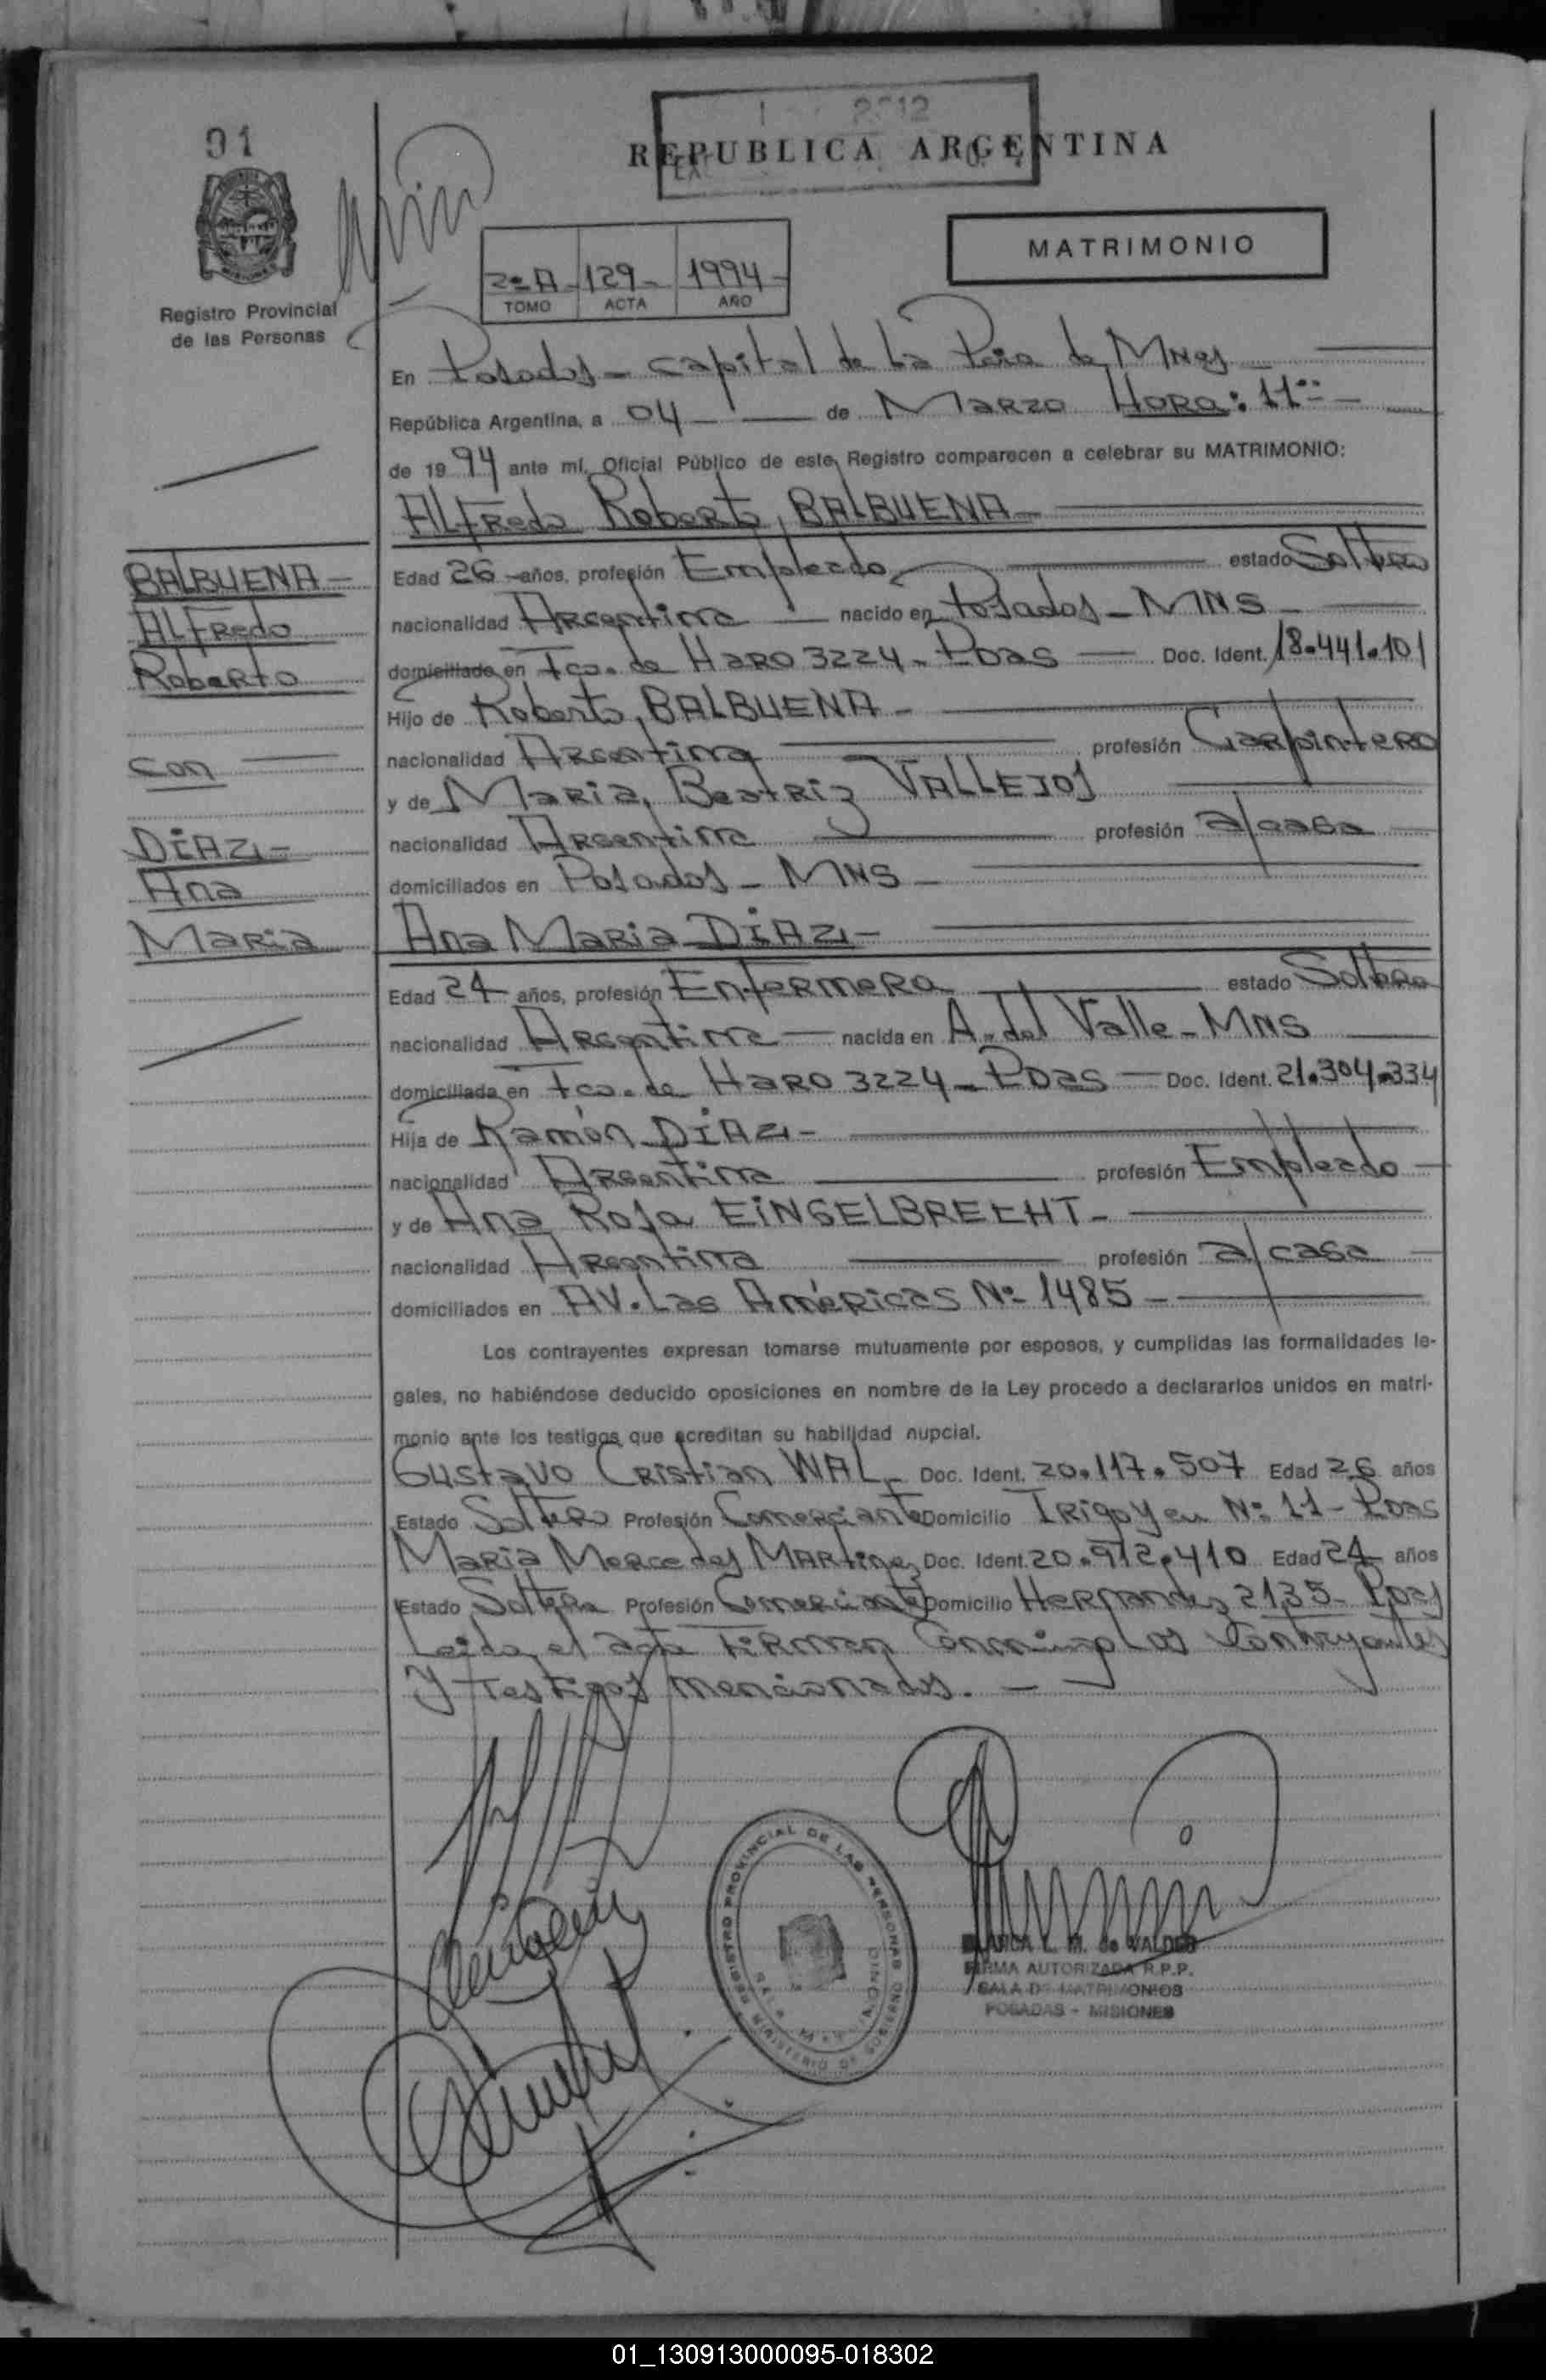 91
REPUBLICA ARGENTINA
MATRIMONIO
2º A - 129 - 1994 -
TOMO ACTA AÑO
Registro Provincial
de las Personas
En Posadas - capital de la Pcia de Mnes
República Argentina, a 04 de Marzo Hora: 11
de 1994 ante mí, Oficial Público de este Registro comparecen a celebrar su MATRIMONIO:
Alfredo Roberto, BALBUENA -
BALBUENA -
Alfredo
Roberto
con
DiAZ -
Ana
Maria
Edad 26 años, profesión Empleado estado Soltero
nacionalidad Argentina nacido en Posadas - MNS -
domiciliado en Fco. de Haro 3224 - Pdas Doc. Ident. 18.441.101
Hijo de Roberto, BALBUENA -
nacionalidad Argentina profesión Carpintero
y de Maria, Beatriz VALLEJOS
nacionalidad Argentina profesión a/casa
domiciliados en Posadas - MNS -
Ana Maria DiAZ -
Edad 24 años, profesión Enfermera estado Soltera
nacionalidad Argentina nacida en A. del Valle - MNS
domiciliada en Fco. de Haro 3224 - Pdas Doc. Ident. 21.304.334
Hija de Ramón DiAZ -
nacionalidad Argentina profesión Empleado
y de Ana Rosa EiNGELBRECHT -
nacionalidad Argentina profesión a/casa
domiciliados en AV. Las Américas Nº 1485 -
Los contrayentes expresan tomarse mutuamente por esposos, y cumplidas las formalidades le-
gales, no habiéndose deducido oposiciones en nombre de la Ley procedo a declararlos unidos en matri-
monio ante los testigos que acreditan su habilidad nupcial.
Gustavo Cristian WAL - Doc. Ident. 20.117.507 Edad 26 años
Estado Soltero Profesión Comerciante Domicilio Irigoyen Nº 11 - Pdas
Maria Mercedes MARtinez Doc. Ident. 20.912.410 Edad 24 años
Estado Soltera Profesión Comerciante Domicilio Hernandez 2135 - Pdas
Leida el acta Firman Conmigo Los Contrayentes
y testigos mencionados. -
REGISTRO PROVINCIAL DE LAS PERSONAS
MINISTERIO DE GOBIERNO
L. M. de VALDES
FIRMA AUTORIZADA R.P.P.
SALA DE MATRIMONIOS
POSADAS - MISIONES
01_130913000095-018302